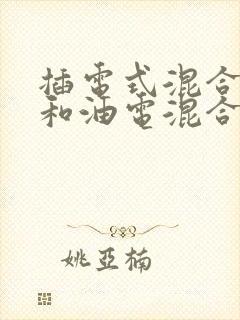 插電式混合
和油電混合
姚亞楠